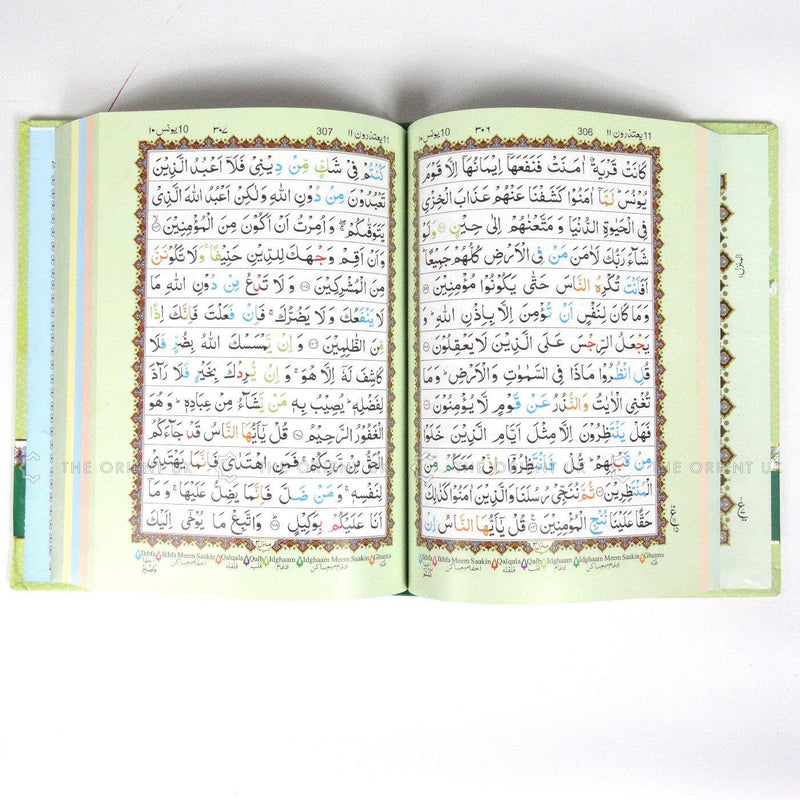 11 يعتذرون ١١
306
٣٠٦
10 يونس ١٠
كَانَتْ قَرْيَةٌ اٰمَنَتْ فَنَفَعَهَاۤ اِيْمَانُهَاۤ اِلَّا قَوْمَ
يُوْنُسَ ؕ لَمَّاۤ اٰمَنُوْا كَشَفْنَا عَنْهُمْ عَذَابَ الْخِزْيِ
فِي الْحَيٰوةِ الدُّنْيَا وَ مَتَّعْنٰهُمْ اِلٰى حِيْنٍ ﴿۹۸﴾ وَ لَوْ
شَآءَ رَبُّكَ لَاٰمَنَ مَنْ فِي الْاَرْضِ كُلُّهُمْ جَمِيْعًا ؕ
اَفَاَنْتَ تُكْرِهُ النَّاسَ حَتّٰى يَكُوْنُوْا مُؤْمِنِيْنَ ﴿۹۹﴾
وَ مَا كَانَ لِنَفْسٍ اَنْ تُؤْمِنَ اِلَّا بِاِذْنِ اللّٰهِ ؕ وَ
يَجْعَلُ الرِّجْسَ عَلَى الَّذِيْنَ لَا يَعْقِلُوْنَ ﴿۱۰۰﴾
قُلِ انْظُرُوْا مَاذَا فِي السَّمٰوٰتِ وَ الْاَرْضِ ؕ وَ مَا
تُغْنِي الْاٰيٰتُ وَ النُّذُرُ عَنْ قَوْمٍ لَّا يُؤْمِنُوْنَ ﴿۱۰۱﴾
فَهَلْ يَنْتَظِرُوْنَ اِلَّا مِثْلَ اَيَّامِ الَّذِيْنَ خَلَوْا
مِنْ قَبْلِهِمْ ؕ قُلْ فَانْتَظِرُوْۤا اِنِّيْ مَعَكُمْ مِّنَ
الْمُنْتَظِرِيْنَ ﴿۱۰۲﴾ ثُمَّ نُنَجِّيْ رُسُلَنَا وَ الَّذِيْنَ اٰمَنُوْا كَذٰلِكَ ۚ
حَقًّا عَلَيْنَا نُنْجِ الْمُؤْمِنِيْنَ ﴿۱۰۳﴾ قُلْ يٰۤاَيُّهَا النَّاسُ اِنْ
Ikhfa Ikhfa Meem Saakin Qalqala Qalb Idghaam Idghaam Meem Saakin Ghunna
11 يعتذرون ١١
307
٣٠٧
10 يونس ١٠
كُنْتُمْ فِيْ شَكٍّ مِّنْ دِيْنِيْ فَلَاۤ اَعْبُدُ الَّذِيْنَ
تَعْبُدُوْنَ مِنْ دُوْنِ اللّٰهِ وَ لٰكِنْ اَعْبُدُ اللّٰهَ الَّذِيْ
يَتَوَفّٰىكُمْ ۖۚ وَ اُمِرْتُ اَنْ اَكُوْنَ مِنَ الْمُؤْمِنِيْنَ ﴿۱۰۴﴾
وَ اَنْ اَقِمْ وَجْهَكَ لِلدِّيْنِ حَنِيْفًا ۚ وَ لَا تَكُوْنَنَّ
مِنَ الْمُشْرِكِيْنَ ﴿۱۰۵﴾ وَ لَا تَدْعُ مِنْ دُوْنِ اللّٰهِ مَا
لَا يَنْفَعُكَ وَ لَا يَضُرُّكَ ۚ فَاِنْ فَعَلْتَ فَاِنَّكَ اِذًا
مِّنَ الظّٰلِمِيْنَ ﴿۱۰۶﴾ وَ اِنْ يَّمْسَسْكَ اللّٰهُ بِضُرٍّ فَلَا
كَاشِفَ لَهٗۤ اِلَّا هُوَ ۚ وَ اِنْ يُّرِدْكَ بِخَيْرٍ فَلَا رَآدَّ
لِفَضْلِهٖ ؕ يُصِيْبُ بِهٖ مَنْ يَّشَآءُ مِنْ عِبَادِهٖ ؕ وَ هُوَ
الْغَفُوْرُ الرَّحِيْمُ ﴿۱۰۷﴾ قُلْ يٰۤاَيُّهَا النَّاسُ قَدْ جَآءَكُمُ
الْحَقُّ مِنْ رَّبِّكُمْ ۚ فَمَنِ اهْتَدٰى فَاِنَّمَا يَهْتَدِيْ
لِنَفْسِهٖ ۚ وَ مَنْ ضَلَّ فَاِنَّمَا يَضِلُّ عَلَيْهَا ۚ وَ مَاۤ
اَنَا عَلَيْكُمْ بِوَكِيْلٍ ﴿۱۰۸﴾ وَ اتَّبِعْ مَا يُوْحٰۤى اِلَيْكَ
Ikhfa Ikhfa Meem Saakin Qalqala Qalb Idghaam Idghaam Meem Saakin Ghunna
THE ORIENT UK